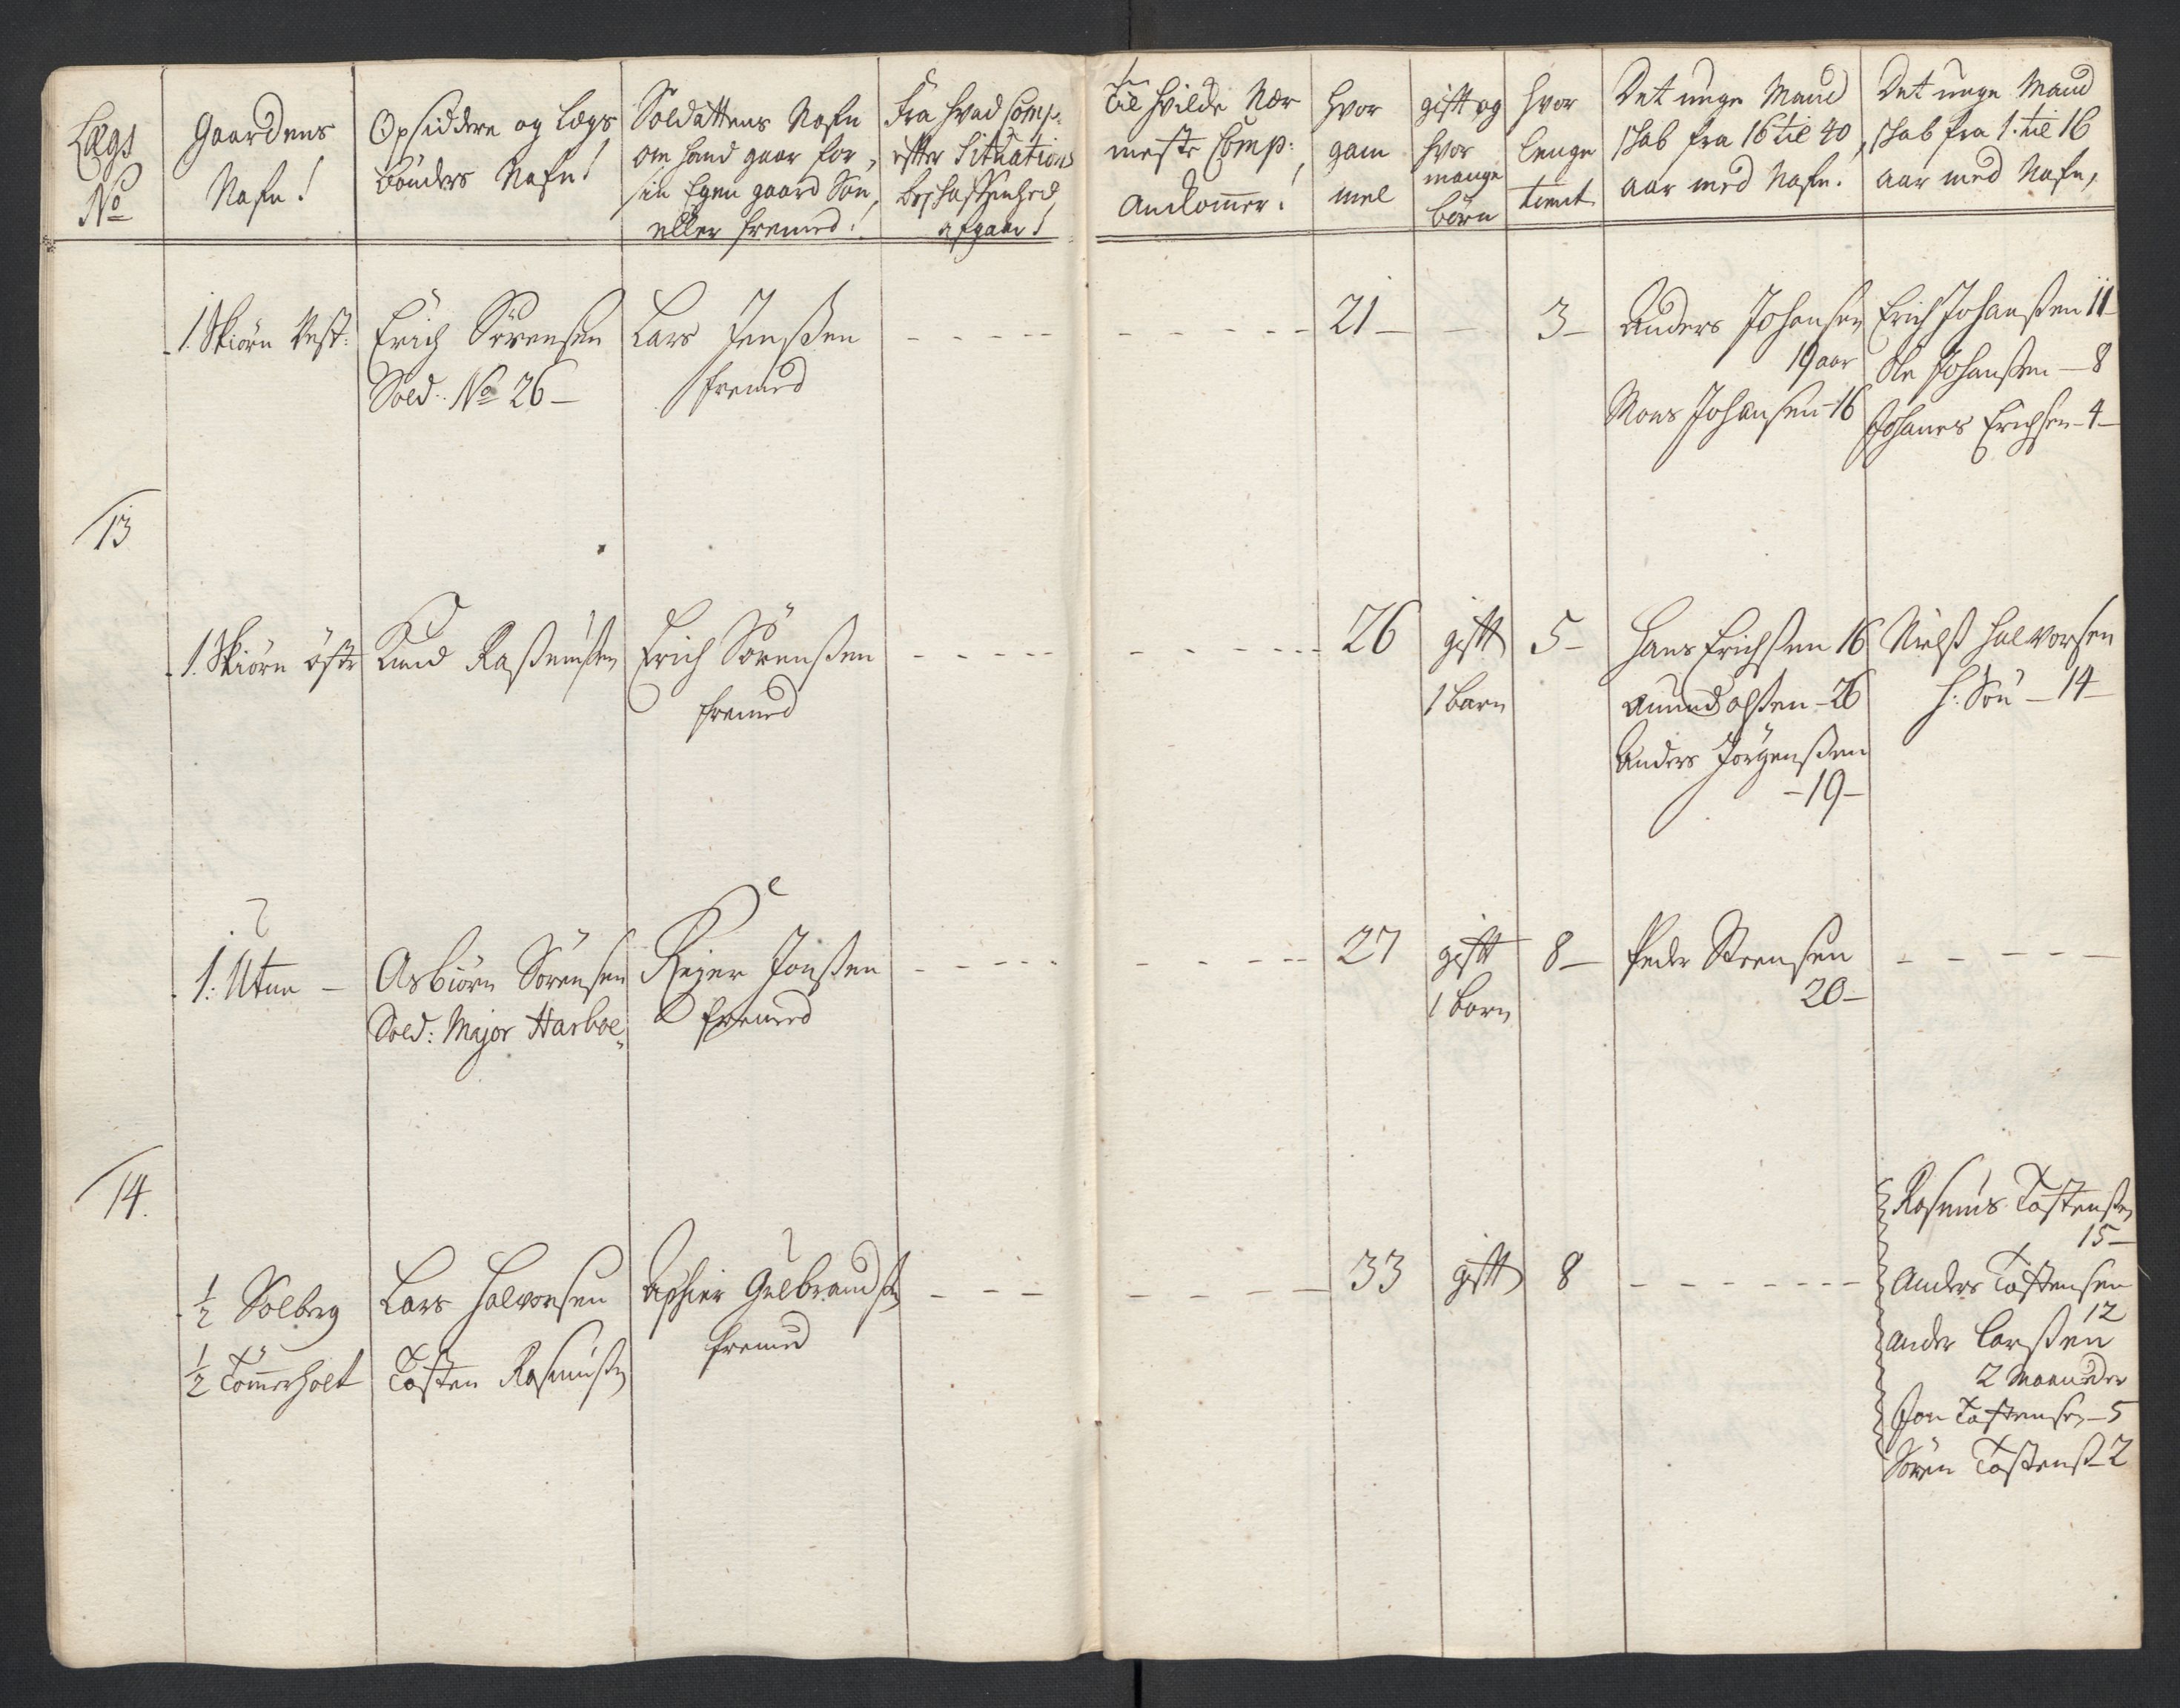 Lægs
No
Gaardens
Nafn!
Opsiddere og Lægs
bönders Nafn!
Soldattens Nafn
om hand gaar for
sin Egen gaard Sön,
eller fremed!
Fra hvad Comp:
efter Situations
beskaffenhed
afgaar!
Til hvilde Nær
meste Comp:
Ankommer!
hvor
gam
mel
gift og
hvor
mange
börn
hvor
lenge
tient
Det unge Mand
skab fra 16 til 40
aar med Nafn.
Det unge Mand
skab fra 1. til 16
aar med Nafn,
1. Skiörn Vest:
Erich Sörensen
Sold. No 26 –
Lars Jenssen
fremed
21 –
3 –
Anders Johansen
19 aar
Mons Johansen – 16
Erich Johanssen 11 –
Ole Johanssen – 8
Johanes Erichsen – 4 –
13
1. Skiörn öst:
Knud Rassmussen
Erich Sörenssen
fremed
26
gift
1 barn
5 –
Hans Erichssen 16
Amund olssen – 26
Anders Jörgenssen
– 19 –
Nielss Halvorsen
H: Sön – 14 –
1: Utne –
Asbiörn Sörensen
Sold: Major Harboe
Reier Jonssen
fremed
27
gift
1 barn
8 –
Peder Steensen
20 –
14.
1/2 Solberg
1/2 Tömmerholt
Lars Halvorsen
Tosten Rasmuss
Gulbrands
fremed
33
gift
8
Rasmus Tostenss
15 –
Anders Tostensen
12
Ander Larssen
2 Maaneder
Jon Tostensen – 5
Sören Tostenss – 2